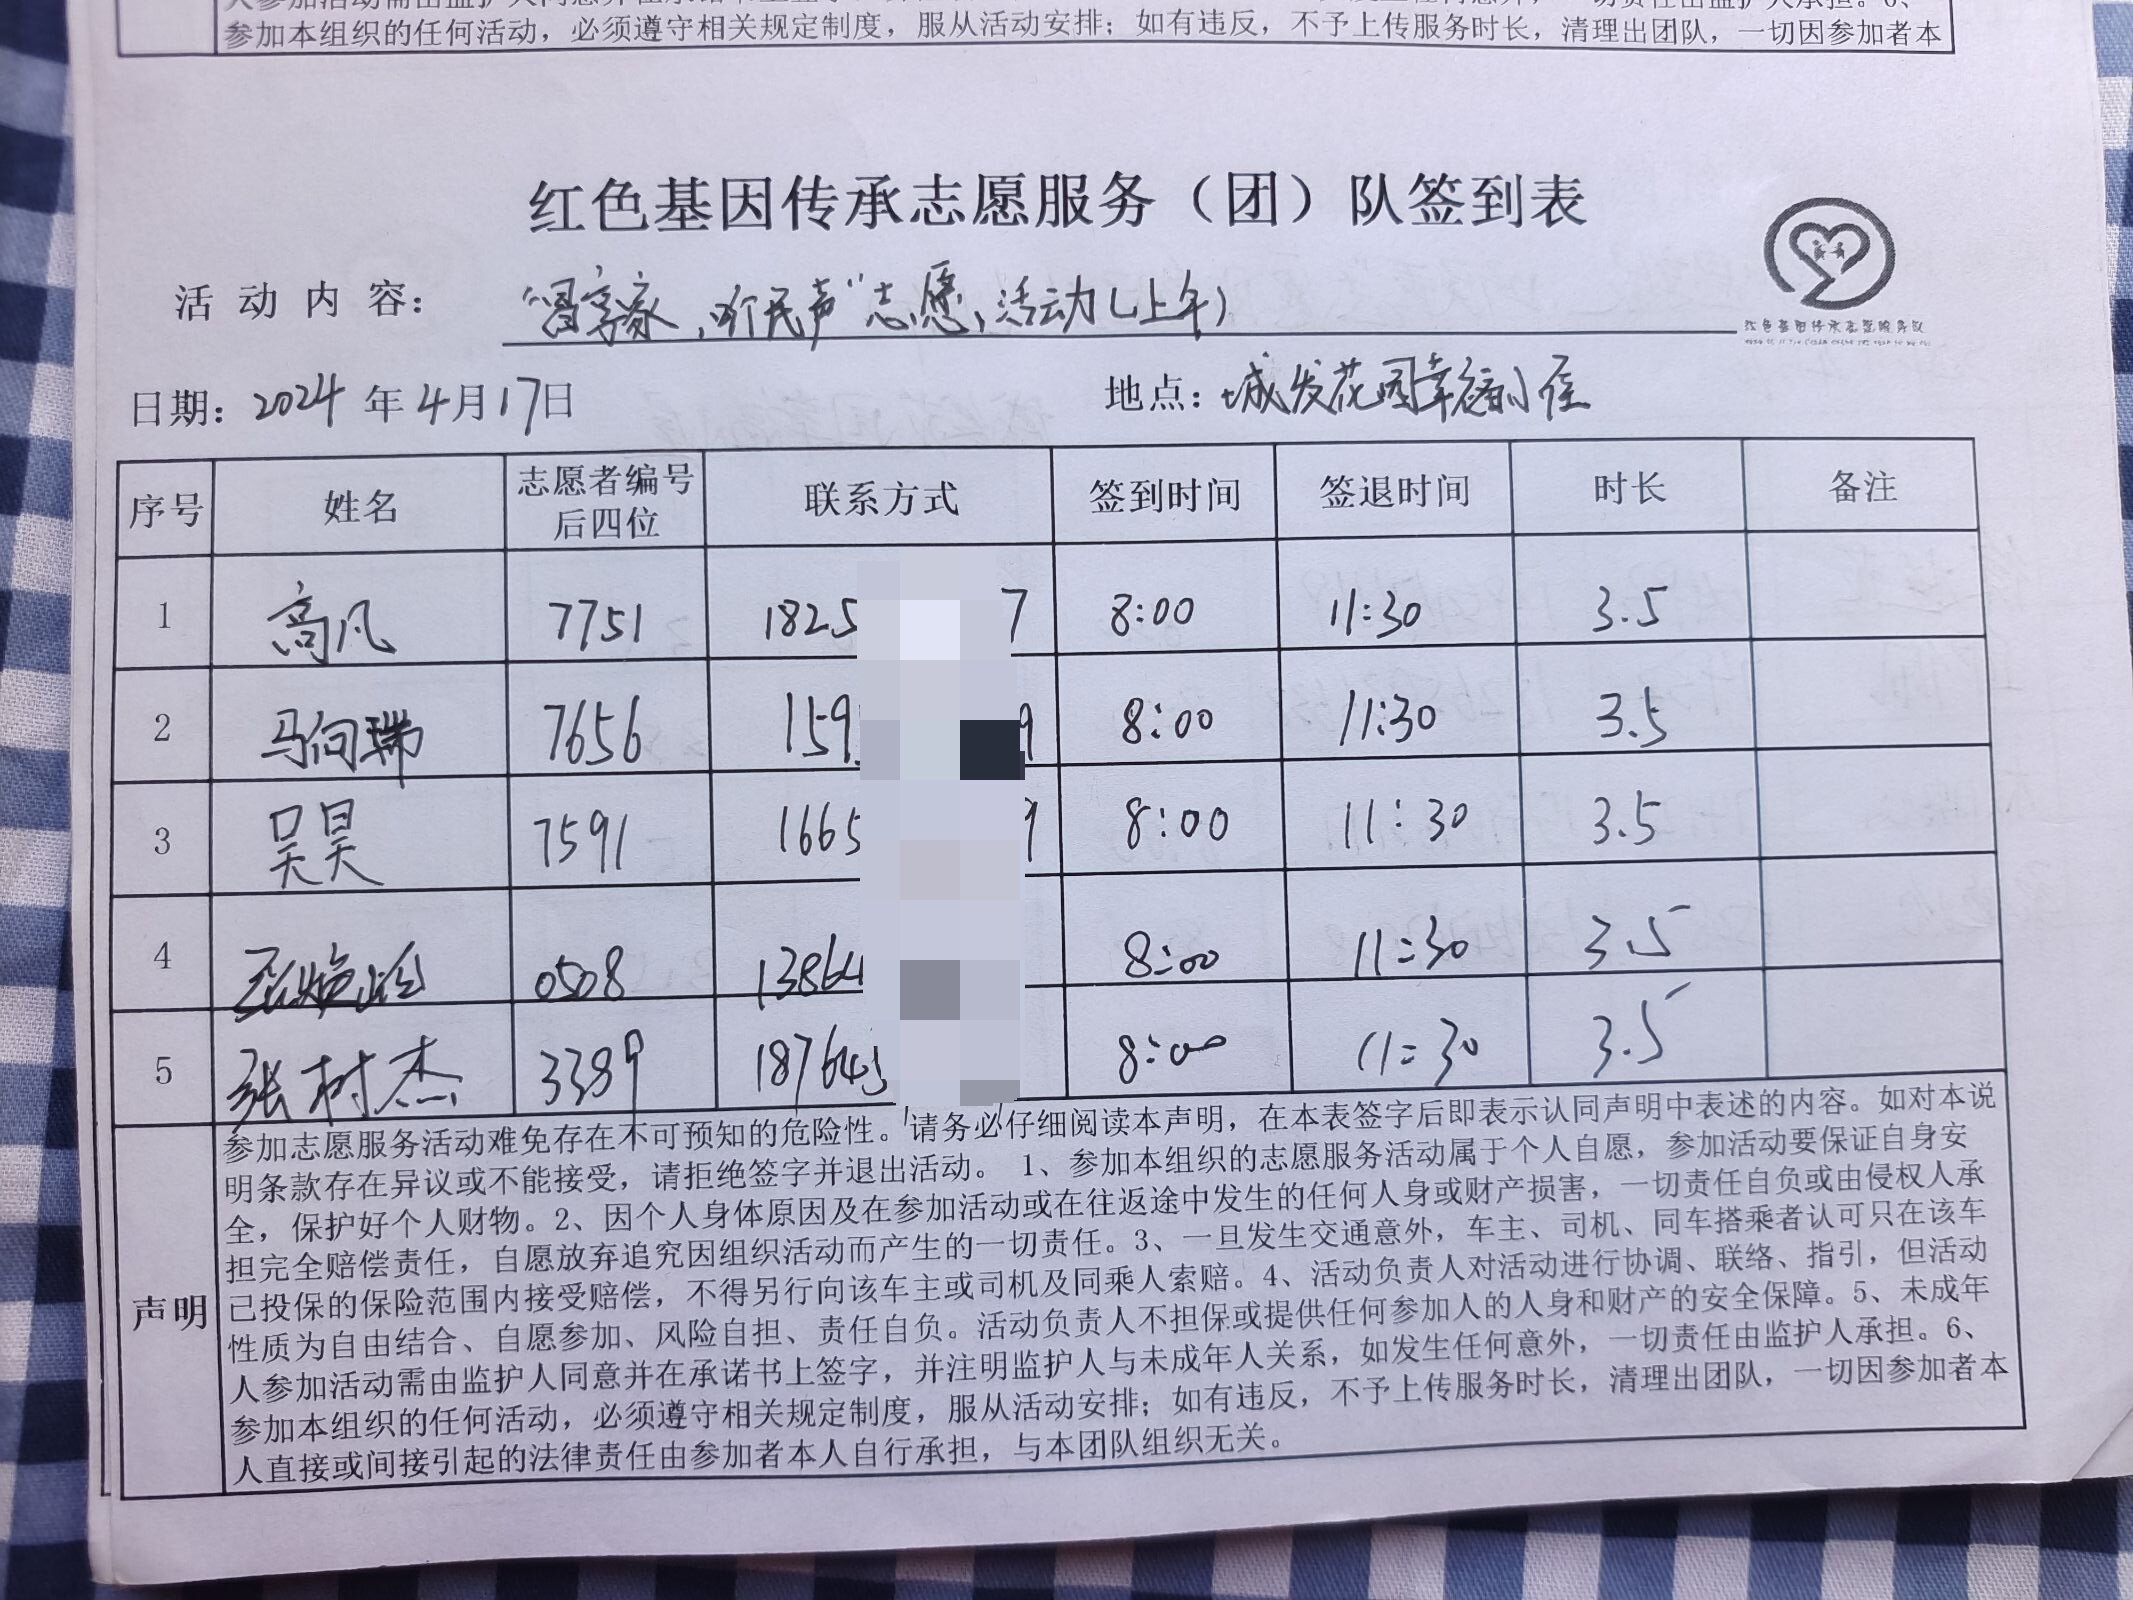 参加本组织的任何活动，必须遵守相关规定制度，服从活动安排；如有违反，不予上传服务时长，清理出团队，一切因参加者本
红色基因传承志愿服务（团）队签到表
活动内容： 听民声”志愿活动（上午）
红色基因传承志愿服务队
日期：2024年4月17日 地点：城发花园幸福小屋
序号 姓名 志愿者编号后四位 联系方式 签到时间 签退时间 时长 备注
1 高凡 7751 1825 7 8:00 11:30 3.5
2 马向瑞 7656 159 9 8:00 11:30 3.5
3 吴昊 7591 1665 9 8:00 11:30 3.5
4 0508 13864 8:00 11:30 3.5
5 张树杰 3389 18764 8:00 11:30 3.5
声明
参加志愿服务活动难免存在不可预知的危险性。请务必仔细阅读本声明，在本表签字后即表示认同声明中表述的内容。如对本说
明条款存在异议或不能接受，请拒绝签字并退出活动。 1、参加本组织的志愿服务活动属于个人自愿，参加活动要保证自身安
全，保护好个人财物。2、因个人身体原因及在参加活动或在往返途中发生的任何人身或财产损害，一切责任自负或由侵权人承
担完全赔偿责任，自愿放弃追究因组织活动而产生的一切责任。3、一旦发生交通意外，车主、司机、同车搭乘者认可只在该车
已投保的保险范围内接受赔偿，不得另行向该车主或司机及同乘人索赔。4、活动负责人对活动进行协调、联络、指引，但活动
性质为自由结合、自愿参加、风险自担、责任自负。活动负责人不担保或提供任何参加人的人身和财产的安全保障。5、未成年
人参加活动需由监护人同意并在承诺书上签字，并注明监护人与未成年人关系，如发生任何意外，一切责任由监护人承担。6、
参加本组织的任何活动，必须遵守相关规定制度，服从活动安排；如有违反，不予上传服务时长，清理出团队，一切因参加者本
人直接或间接引起的法律责任由参加者本人自行承担，与本团队组织无关。